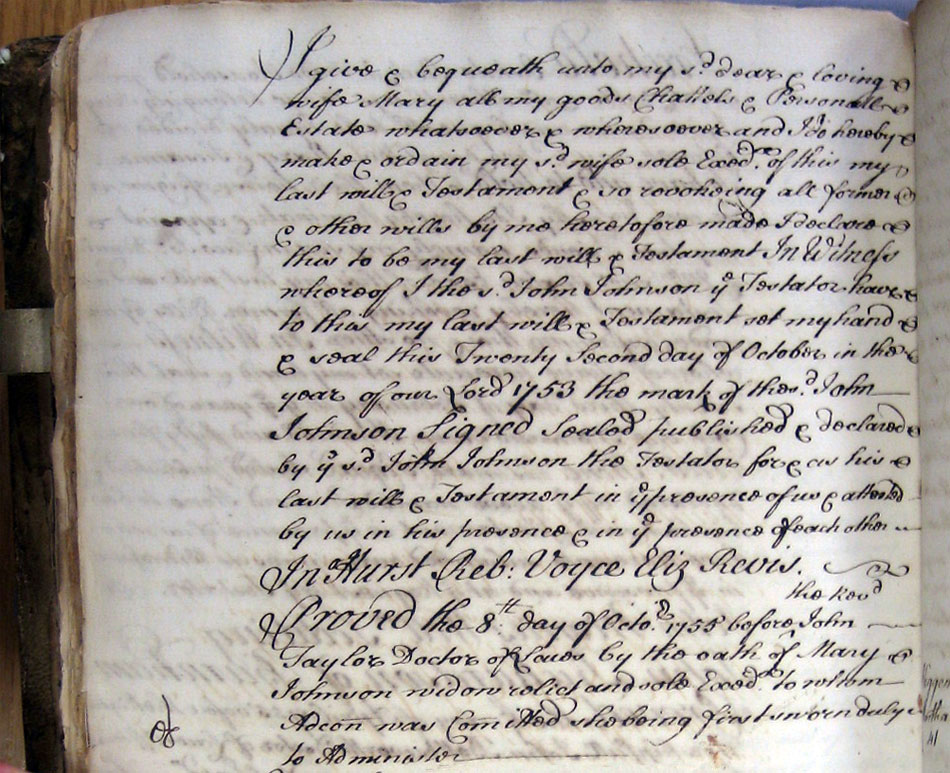 I give & bequeath unto my sd dear & loving
wife Mary all my goods Chattels & Personall
Estate whatsoever & wheresoever and I do hereby
make & ordain my sd wife sole Execx of this my
last will & Testament & so revokeing all former
& other wills by me heretofore made I declare
this to be my last will & Testament In Witness
whereof I the sd John Johnson ye Testator have
to this my last will & Testament set my hand
& seal this Twenty Second day of October in the
year of our Lord 1753 the mark of the sd John
Johnson Signed Sealed published & declared
by ye sd John Johnson the Testator for & as his
last will & Testament in ye presence of us & attested
by us in his presence & in ye presence of each other
Jna Hurst Reb: Voyce Eliz Revis.
the Revd
Proved the 8th day of Octor 1755 before John
Taylor Doctor of Laws by the oath of Mary
Johnson widow relict and sole Execx to whom
Adcon was Comitted she being first sworn duly
to Administer
41